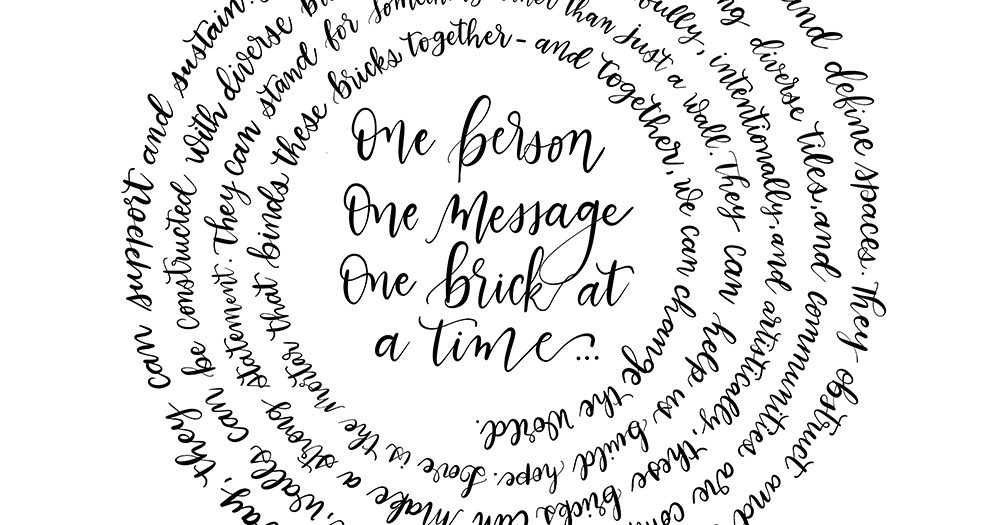 One person
One message
One brick at
a time...
and define spaces. They obstruct and
they can support and sustain.
walls can be constructed with diverse
diverse tiles, and communities are
intentionally, and artistically, these bricks can make a strong statement. They can stand for something
than just a wall. They can help us build hope. Love is the mortar that binds these bricks together - and together, we can change the world.